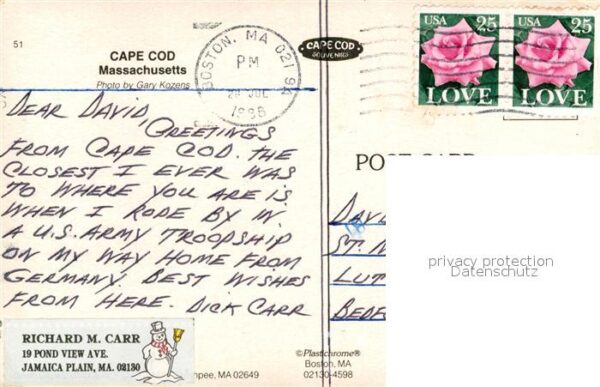 51
CAPE COD
Massachusetts
Photo by Gary Kozens
BOSTON, MA 021
PM
1988
CAPE COD
SOUVENIRS
USA 25
LOVE
USA 25
LOVE
DEAR DAVID,
GREETINGS
FROM CAPE COD. THE
CLOSEST I EVER WAS
TO WHERE YOU ARE IS
WHEN I RODE BY IN
A U.S. ARMY TROOPSHIP
ON MY WAY HOME FROM
GERMANY. BEST WISHES
FROM HERE. DICK CARR
POST CARD
DAVI
ST.
LUT
BEDF
privacy protection
Datenschutz
RICHARD M. CARR
19 POND VIEW AVE.
JAMAICA PLAIN, MA. 02130
npee, MA 02649
©Plastichrome®
Boston, MA
02130-4598